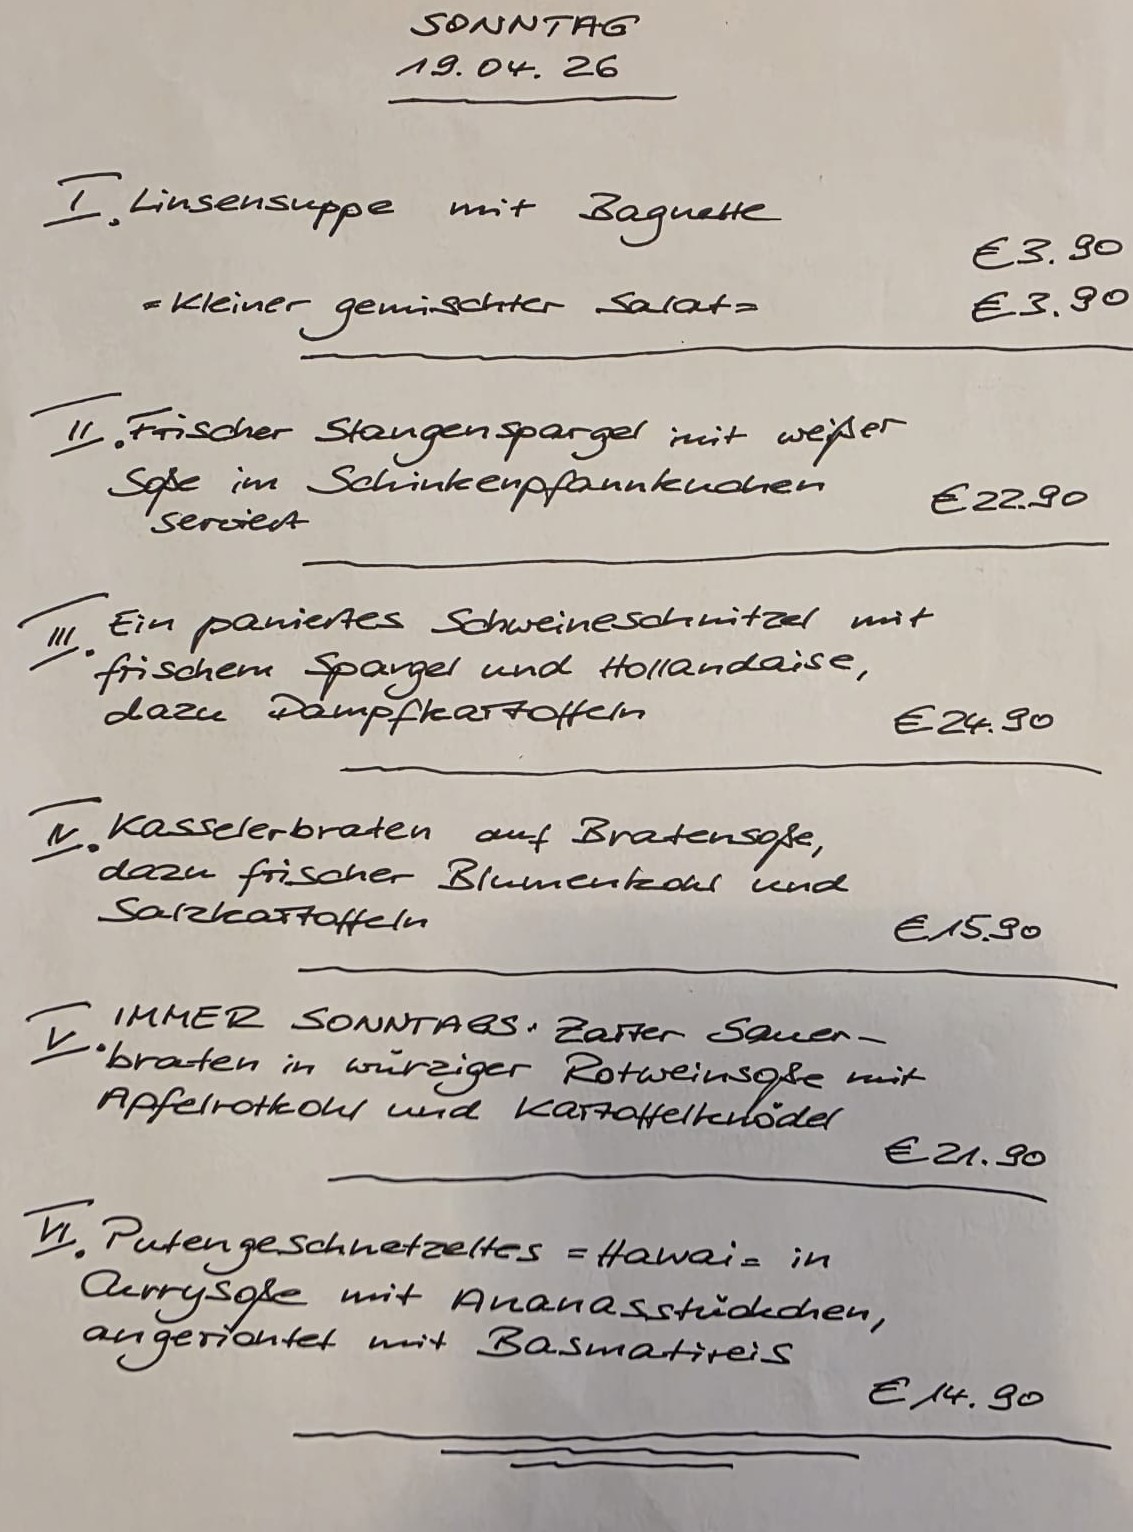 SONNTAG
19.04.26
I. Linsensuppe mit Baguette
€3.90
=Kleiner gemischter Salat= €3.90
II. Frischer Stangenspargel mit weißer
Soße im Schinkenpfannkuchen
serviert €22.90
III. Ein paniertes Schweineschnitzel mit
frischem Spargel und Hollandaise,
dazu Dampfkartoffeln €24.90
IV. Kasselerbraten auf Bratensoße,
dazu frischer Blumenkohl und
Salzkartoffeln €15.90
V. IMMER SONNTAGS. Zarter Sauer-
braten in würziger Rotweinsoße mit
Apfelrotkohl und Kartoffelknödel
€21.90
VI. Putengeschnetzeltes =Hawai= in
Currysoße mit Ananasstückchen,
angerichtet mit Basmatireis
€14.90